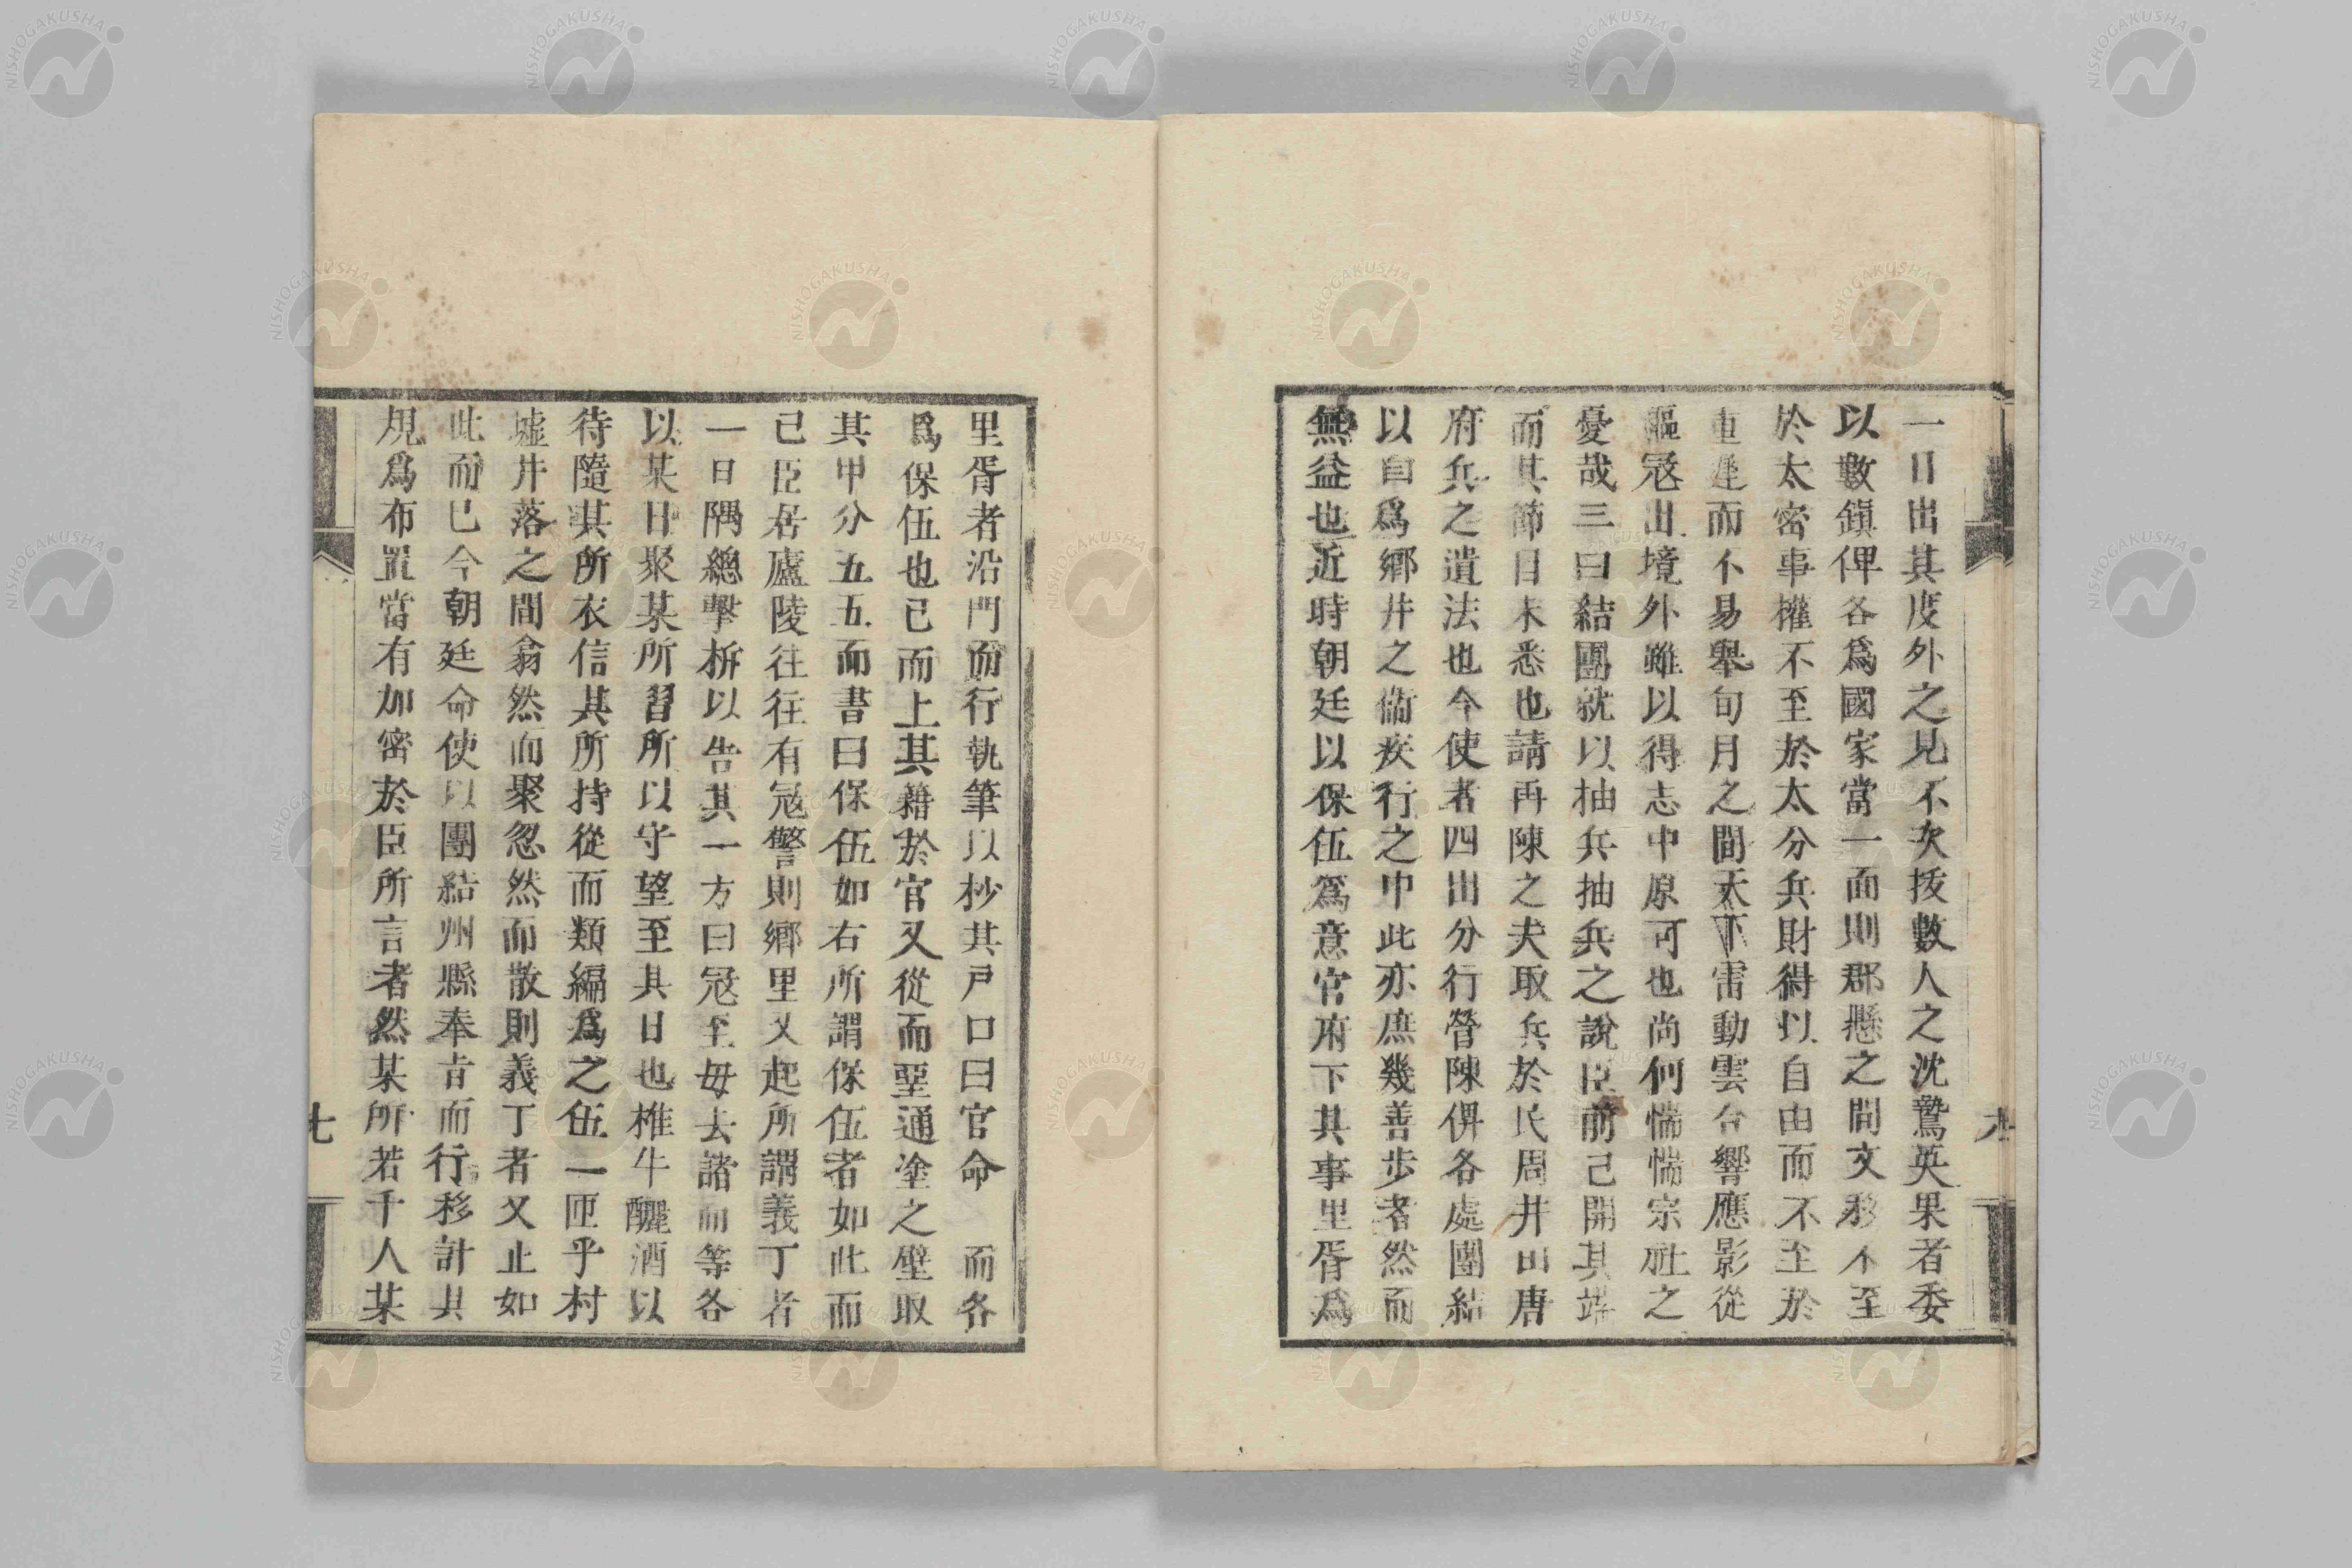 一日出其度外之見不次拔數人之沈鷙英果者委
以數鎮俾各爲國家當一面則郡懸之間文移不至
於太密事權不至於太分兵財得以自由而不至於
重遲而不易舉旬月之間天下雷動雲合響應影從
驅冦出境外雖以得志中原可也尚何惴惴宗社之
憂哉三曰結團就以抽兵抽兵之說臣前己開其端
而其節目未悉也請再陳之夫取兵於民周井田唐
府兵之遺法也今使者四出分行營陳俱各處團結
以自爲鄉井之衞疾行之中此亦庶幾善步者然而
無益也近時朝廷以保伍爲意官府下其事里胥爲
里胥者沿門而行執筆以抄其戸口曰官命 而各
爲保伍也已而上其籍於官又從而堊通塗之壁取
其甲分五五而書曰保伍如右所謂保伍者如此而
己臣居廬陵往往有冦警則鄉里又起所謂義丁者
一日隅總擊柝以告其一方曰冦至毋去諸而等各
以某日聚某所習所以守望至其日也椎牛釃酒以
待隨其所衣信其所持從而類編爲之伍一匝乎村
墟井落之間翕然而聚忽然而散則義丁者又止如
此而已今朝廷命使以團結州縣奉旨而行移計其
規爲布置當有加密於臣所言者然某所若千人某
九
七
NISHOGAKUSHA